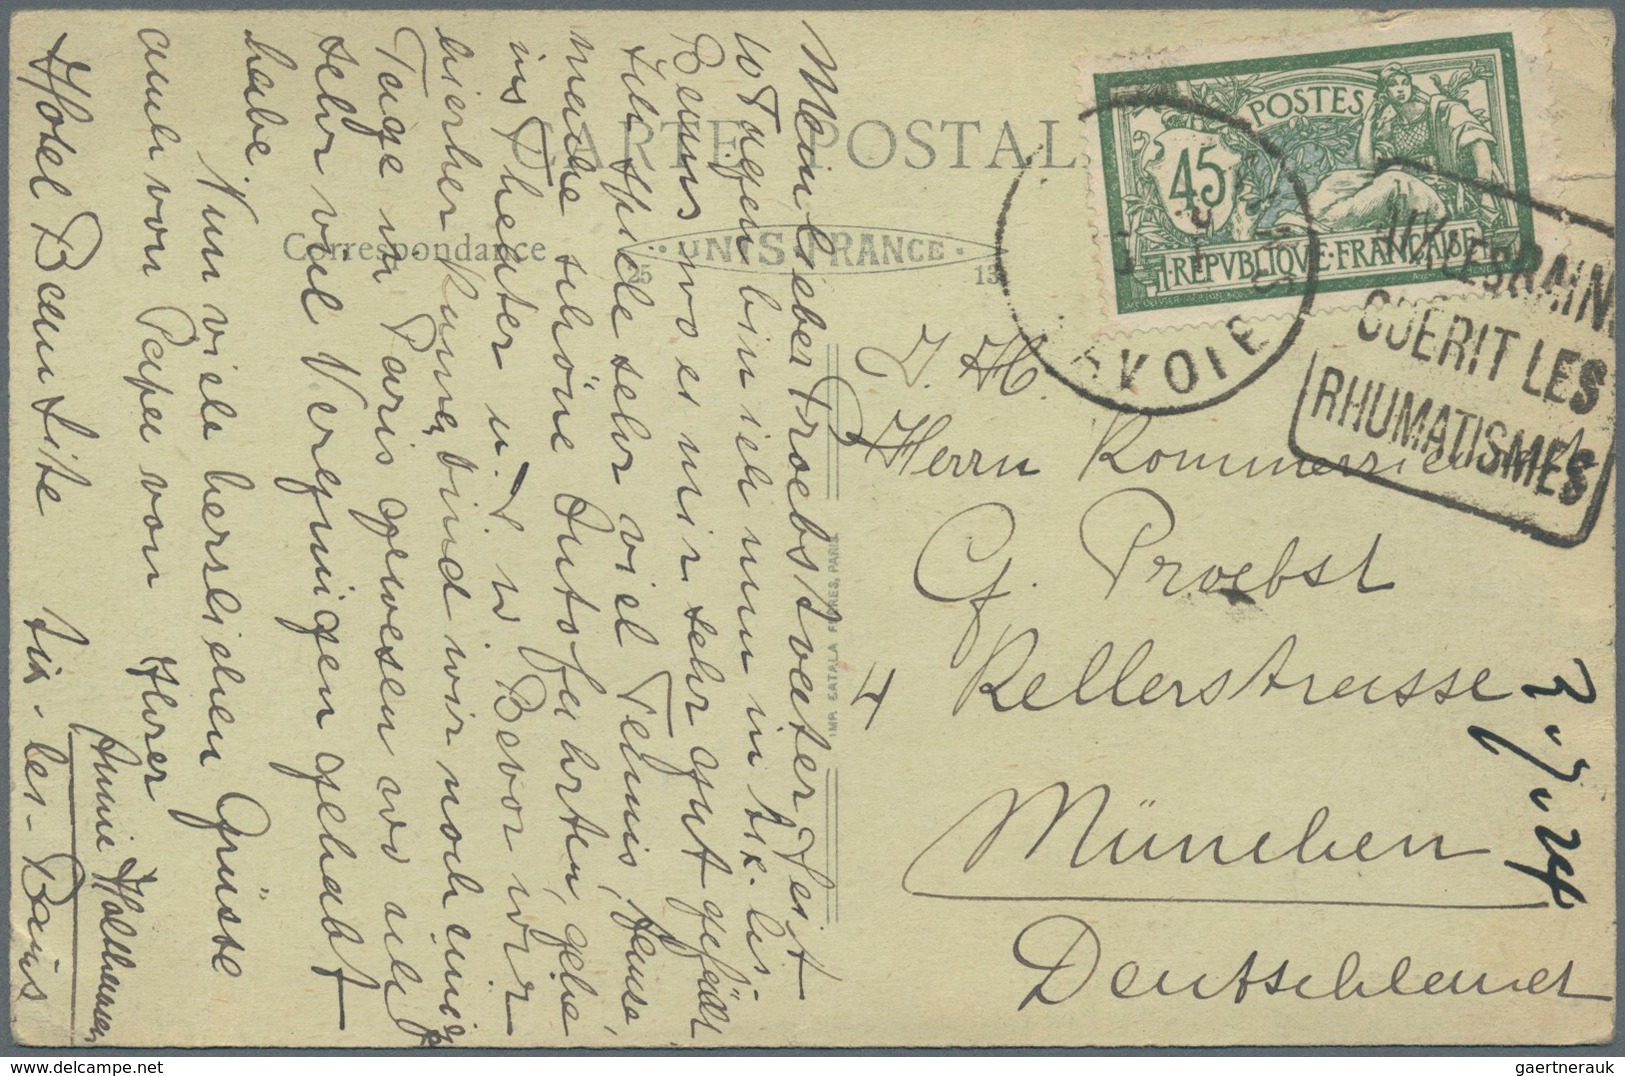 CARTE POSTALE
Correspondance
UNIS-FRANCE
25
13
POSTES
45
REPVBLIQVE·FRANÇAISE
VOIE
GUERIT LES
RHUMATISMES
IMP. CATALA FRERES, PARIS
J. H.
Herrn Kommerzienrat
G. Proebst
4 Kellerstrasse
München
Deutschland
3.7.24
Mein lieber Proebstvater Seit
10 Tagen bin ich nun in Aix-les-
Bains wo es mir sehr gut gefällt
Ich spiele sehr viel Tennis,
mache schöne Autofahrten, gehe
ins Theater u.s.w. Bevor wir
hierher kamen, sind wir noch einige
Tage in Paris gewesen wo ich
sehr viel Vergnügen gehabt
habe.
Nun viele herzlichen Grüsse
auch von Papa von Ihrer
Annie
Hotel Beausite Aix-les-Bains
gaertnerauk
delcampe.net